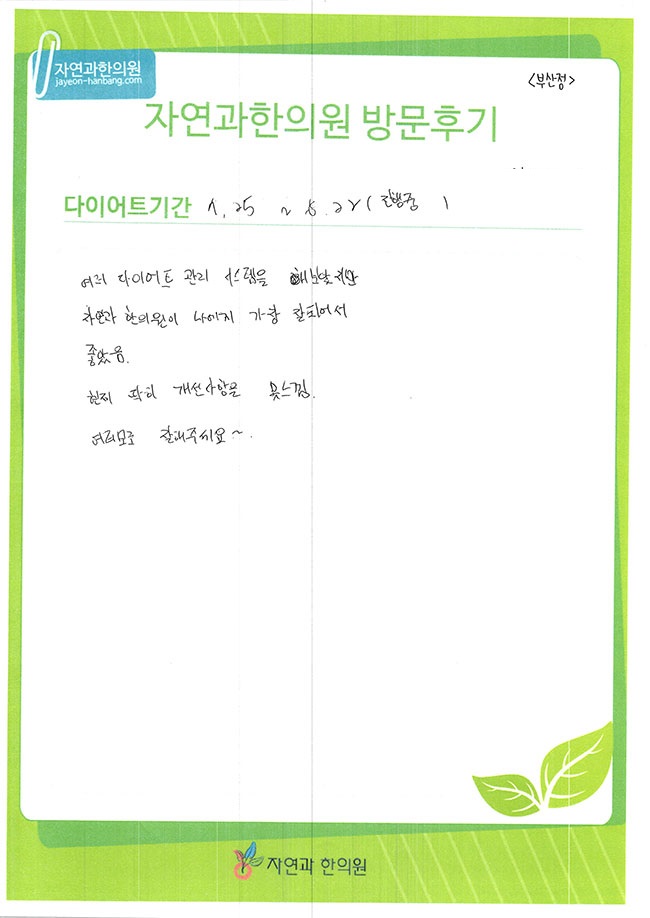 자연과한의원
jayeon-hanbang.com
<부산점>
자연과한의원 방문후기
다이어트기간 1.25 ~ 6.22 (진행중 )
여러 다이어트 관리 시스템을 해보았지만
자연과 한의원이 나에게 가장 잘되어서
좋았음.
현재 딱히 개선사항을 못느낌.
여러모로 잘해주세요~.
자연과 한의원